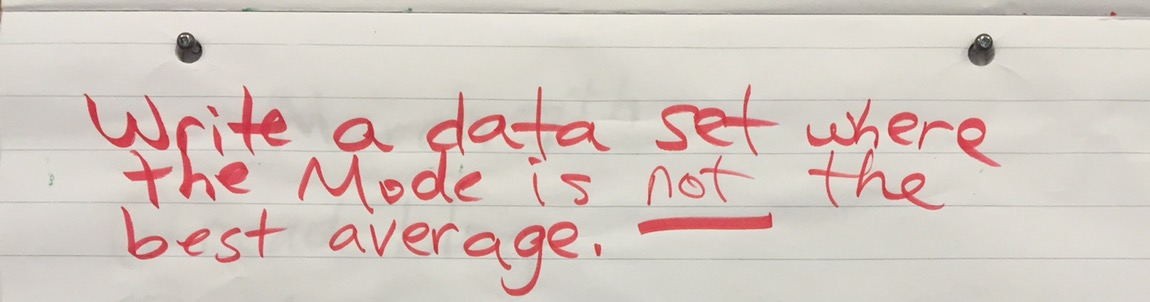 Write a data set where
the Mode is not the
best average.